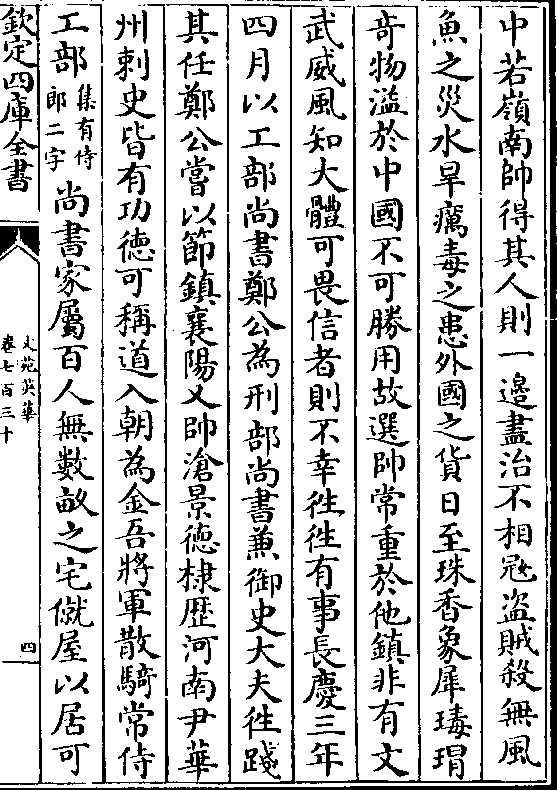 中若嶺南帥得其人則一邊盡治不相冦盜賊殺無風
魚之災水旱癘毒之患外國之貨日至珠香象犀瑇瑁
奇物溢於中國不可勝用故選帥常重於他鎮非有文
武威風知大體可畏信者則不幸徃徃有事長慶三年
四月以工部尚書鄭公為刑部尚書兼御史大夫徃踐
其任鄭公嘗以節鎮襄陽又帥滄景德棣歴河南尹華
州刺史皆有功徳可稱道入朝為金吾將軍散騎常侍
工部集有侍郎二字尚書家屬百人無數畝之宅僦屋以居可
欽定四庫全書
文苑英華
卷七百三十
四